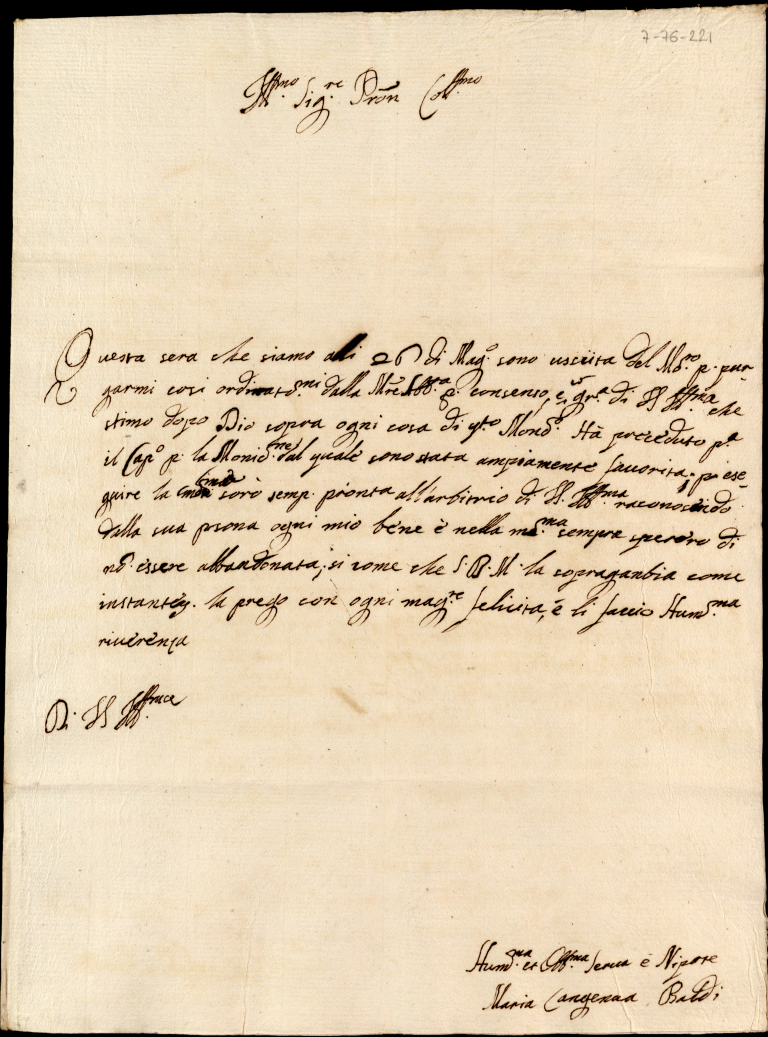 7-76-221
Ill.mo Sig.re Pron Coll.mo
Questa sera che siamo alli 26 di Mag.o sono usscita del M.ro p. pur=
garmi cosi ordinato.mi dalla M.re Abb.a consenso, e gr.a di VS Ill.ma che
stimo dopo Dio sopra ogni cosa di q.to Mond.o Hà preceduto p.a
il Cap.o p. la Monic.ne dal quale sono stata ampiamente favorita; p. ese=
guire la sarò semp. pronta all'arbitrio di VS. Ill.ma raconoscendo
dalla sua psona ogni mio bene è nella med.ma sempre sperero di
nō essere abbandonata, si come che S. D. M. la sopraganbia come
instantem. la prego con ogni mag.re felicita, è li faccio Hum.ma
riuerenza
Di VS Ill.ma
Hum.ma et Obb.ma Serua è Nipote
Maria Baldi